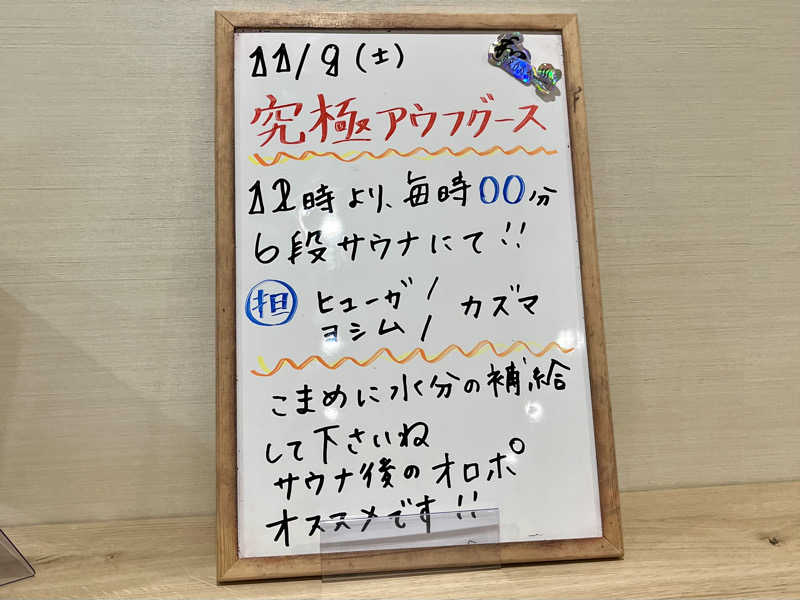 11/9(土)
究極アウフグース
12時より、毎時00分
6段サウナにて!!
担 ヒューガ/ カズマ
ヨシム/
こまめに水分の補給
して下さいね
サウナ後のオロポ
オススメです!!